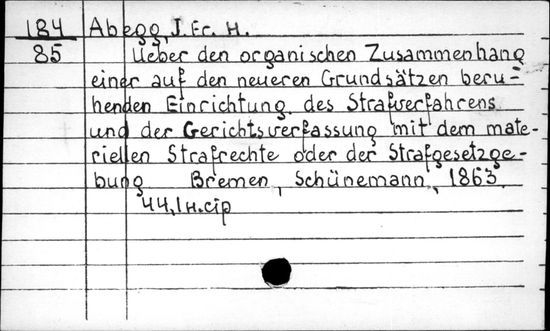 184 Abegg, J. Fr. H.
85 Ueber den organischen Zusammenhang
einer auf den neueren Grundsätzen beru=
henden Einrichtung des Strafverfahrens
und der Gerichtsverfassung mit dem mate-
riellen Strafrechte oder der Strafgesetzge-
bung Bremen, Schünemann, 1863.
44, 1 н.стр